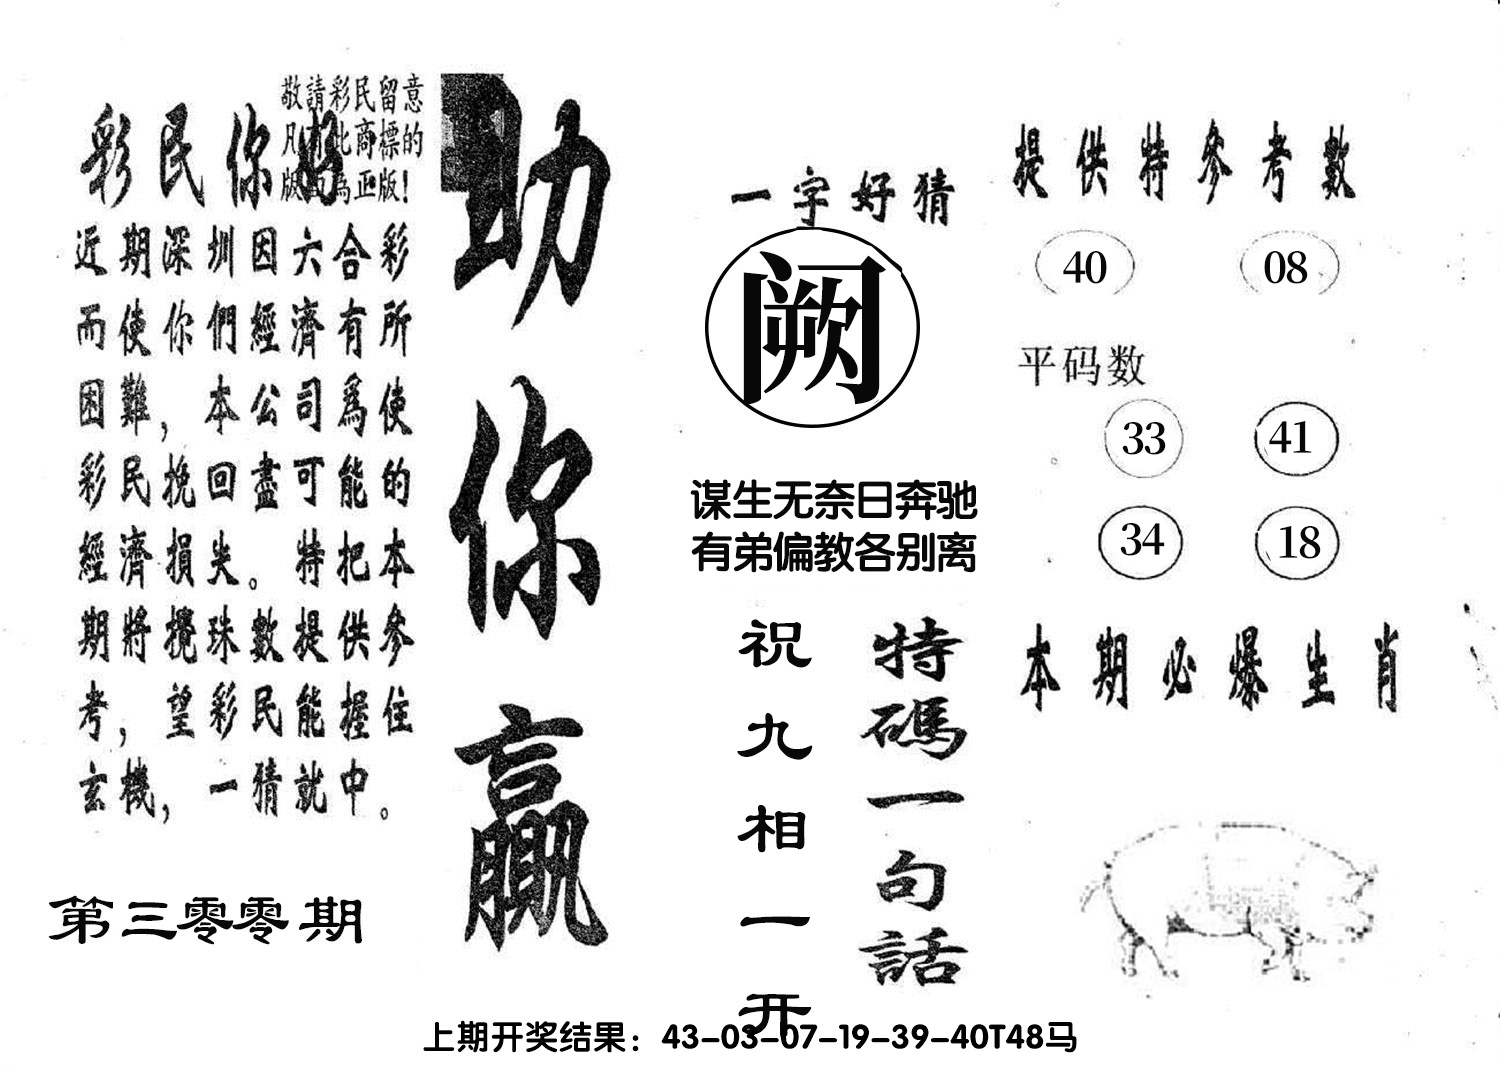 敬請彩民留意
凡有此商標的
版面為正版！
彩民你好
近期深圳因六合彩
而使你們經濟有所
困難，本公司爲使
彩民挽回盡可能的
經濟損失。特把本
期將攪珠數提供參
考，望彩民能握住
玄機，一猜就中。
第三零零期
助你贏
一字好猜
阙
谋生无奈日奔驰
有弟偏教各别离
特碼一句話
祝九相一开
提供特參考數
40 08
平码数
33 41
34 18
本期必爆生肖
上期开奖结果：43-03-07-19-39-40T48马